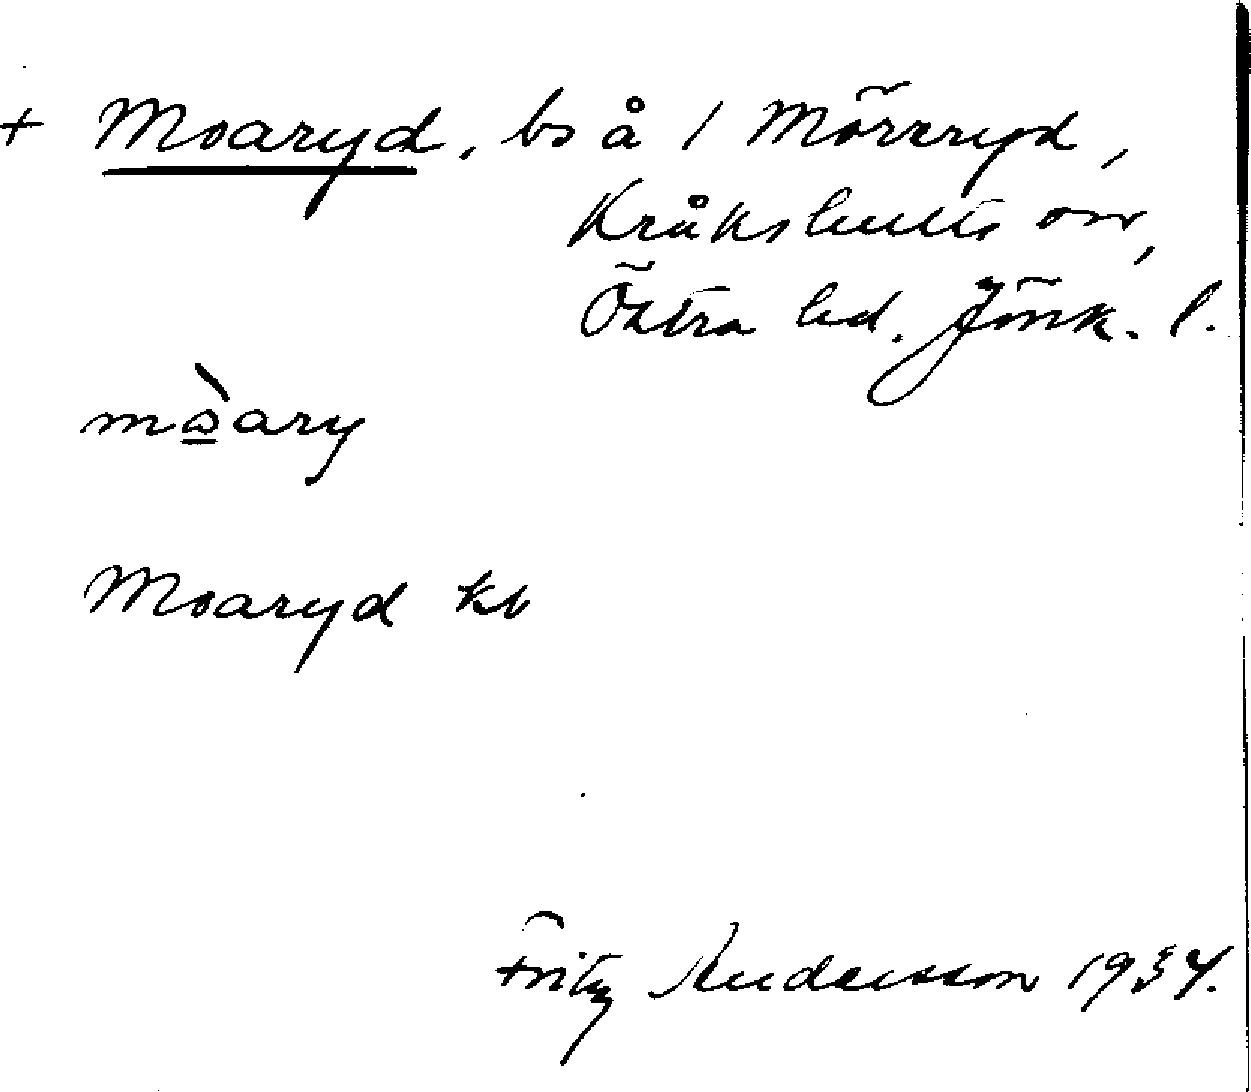 + Moaryd, bs å 1 Mörkryd,
Kråkshults sn,
Östra hd. Jönk. l.
mòary
Moaryd kb
Fritz Andersson 1934.